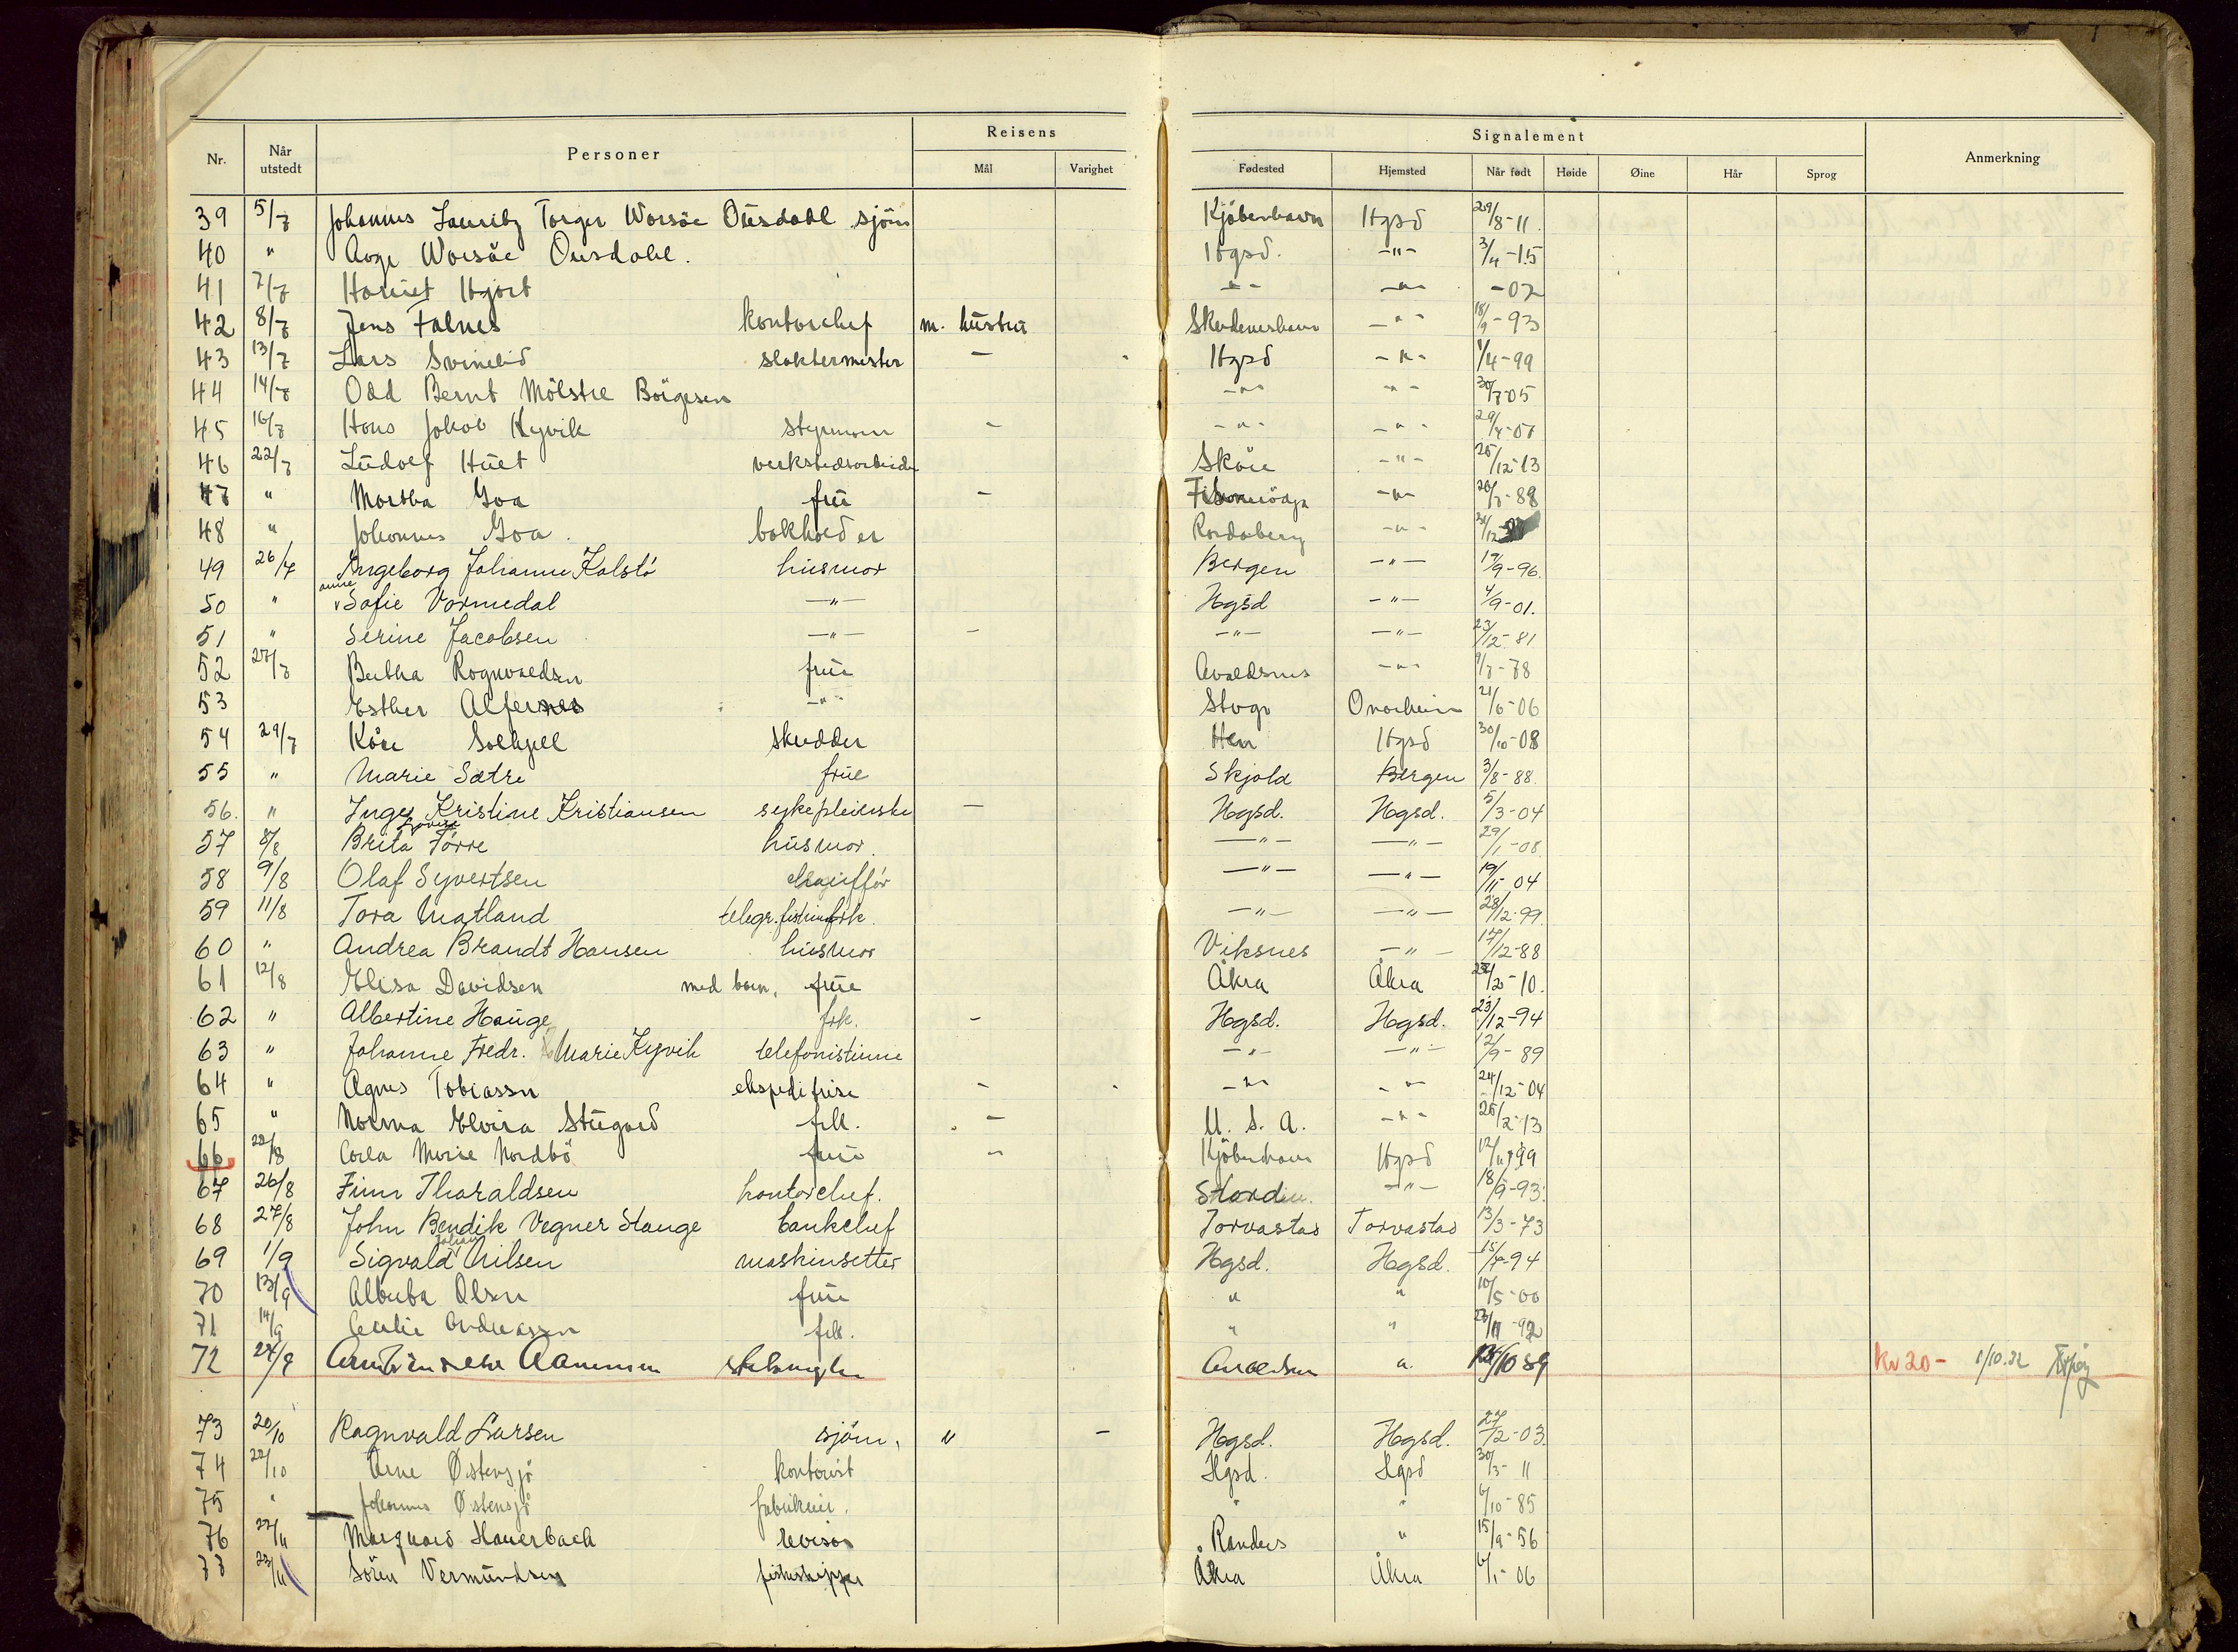 Nr. Når utstedt Personer Reisens Mål Varighet Signalement Fødested Hjemsted Når født Høide Øine Hår Sprog Anmerkning
39 5/7 Johannes Lauritz Torger Worsöe Ousdahl sjöm Kjöbenhavn Hgsd 29/8-11
40 " Aage Worsöe Ousdahl. Hgsd. -"- 3/4-15
41 7/7 Harriet Hjort -"- -"- -02
42 8/7 Jens Falnes kontorchef m. hustru Skudeneshavn -"- 18/9-93
43 13/7 Lars Svinelid slaktermester - Hgsd -"- 1/4-99
44 14/7 Odd Bernt Mölstre Börgesen -"- -"- 30/7-05
45 16/7 Hans Jakob Kyvik styrmann - -"- -"-
46 22/7 Ludolf Huet verkstedsarbeider Skåre -"- 25/12-13
47 " Martha Goa frue - -"- 20/7-88
48 " Johannes Goa. bokholder -"-
49 26/7 Ingeborg Johanne Kalstö husmor Bergen -"- 19/9-96.
50 " Anna Sofie Vormedal -"- Hgsd -"- 4/9-01.
51 " Serine Jacobsen -"- - -"- -"- 23/12-81
52 27/7 Bertha Rognvaldsen frue Avaldsnes -"- 9/7-78
53 Esther Alfernes -"- Onarheim 21/6-06
54 29/7 Kåre Solhjell skredder Hgsd 30/10-08
55 " Marie Sætre frue Skjold Bergen 3/8-88.
56. " Inger Kristine Kristiansen sykepleierske - Hgsd. Hgsd. 5/3-04
57 8/8 Brita Lovise Törre husmor. -"- -"- 29/1-08.
58 9/8 Olaf Syvertsen chaufför -"- -"- 19/11-04
59 11/8 Tora Matland frk. -"- -"- 28/12-99.
60 " Andrea Brandt Hansen husmor Viksnes -"- 17/12-88
61 12/8 Elisa Davidsen med barn, frue Åkra Åkra /2-10.
62 " Albertine Hauge frk. - Hgsd. Hgsd. 23/12-94
63 " Johanne Fredr. Marie Kyvik telefonistinne -"- -"- 12/9-89
64 " Agnes Tobiassen ekspeditrise - -"- -"- 24/12-04
65 " Norma Elvira Stugard frk. - U. S. A. -"- 25/2-13
66 22/8 Carla Marie Nordbö frue - Kjöbenhavn Hgsd
67 26/8 Finn Tharaldsen kontorchef. -"- 18/9-93.
68 27/8 John Bendik Vegner Stange bankchef Torvastad Torvastad 13/3-73
69 1/9 Sigvald Johan Nilsen maskinsetter Hgsd. Hgsd. 15/7-94
70 13/9 Alberta Olsen frue " " 10/5-00
71 14/9 Cecilie Andreassen frk. " "
72 27/9 " 10 89 kr 20- 1/10.32
73 20/10 Ragnvald Larsen sjöm. " - Hgsd. Hgsd. 27/2-03.
74 22/10 Arne Østensjö kontorist Hgsd. Hgsd 30/3-11
75 " Johannes Østensjö fabrikeier. " " 6/10-85
76 22/11 Marquard Hauerbach revisor Randers " 15/9-56
77 23/11 Sören Vermundsen fiskeskipper Åkra Åkra 6/1-06